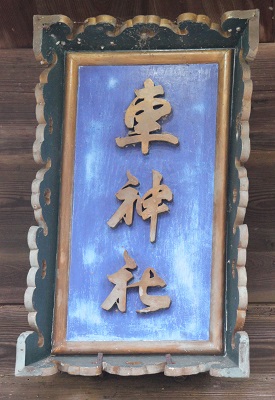 車神社